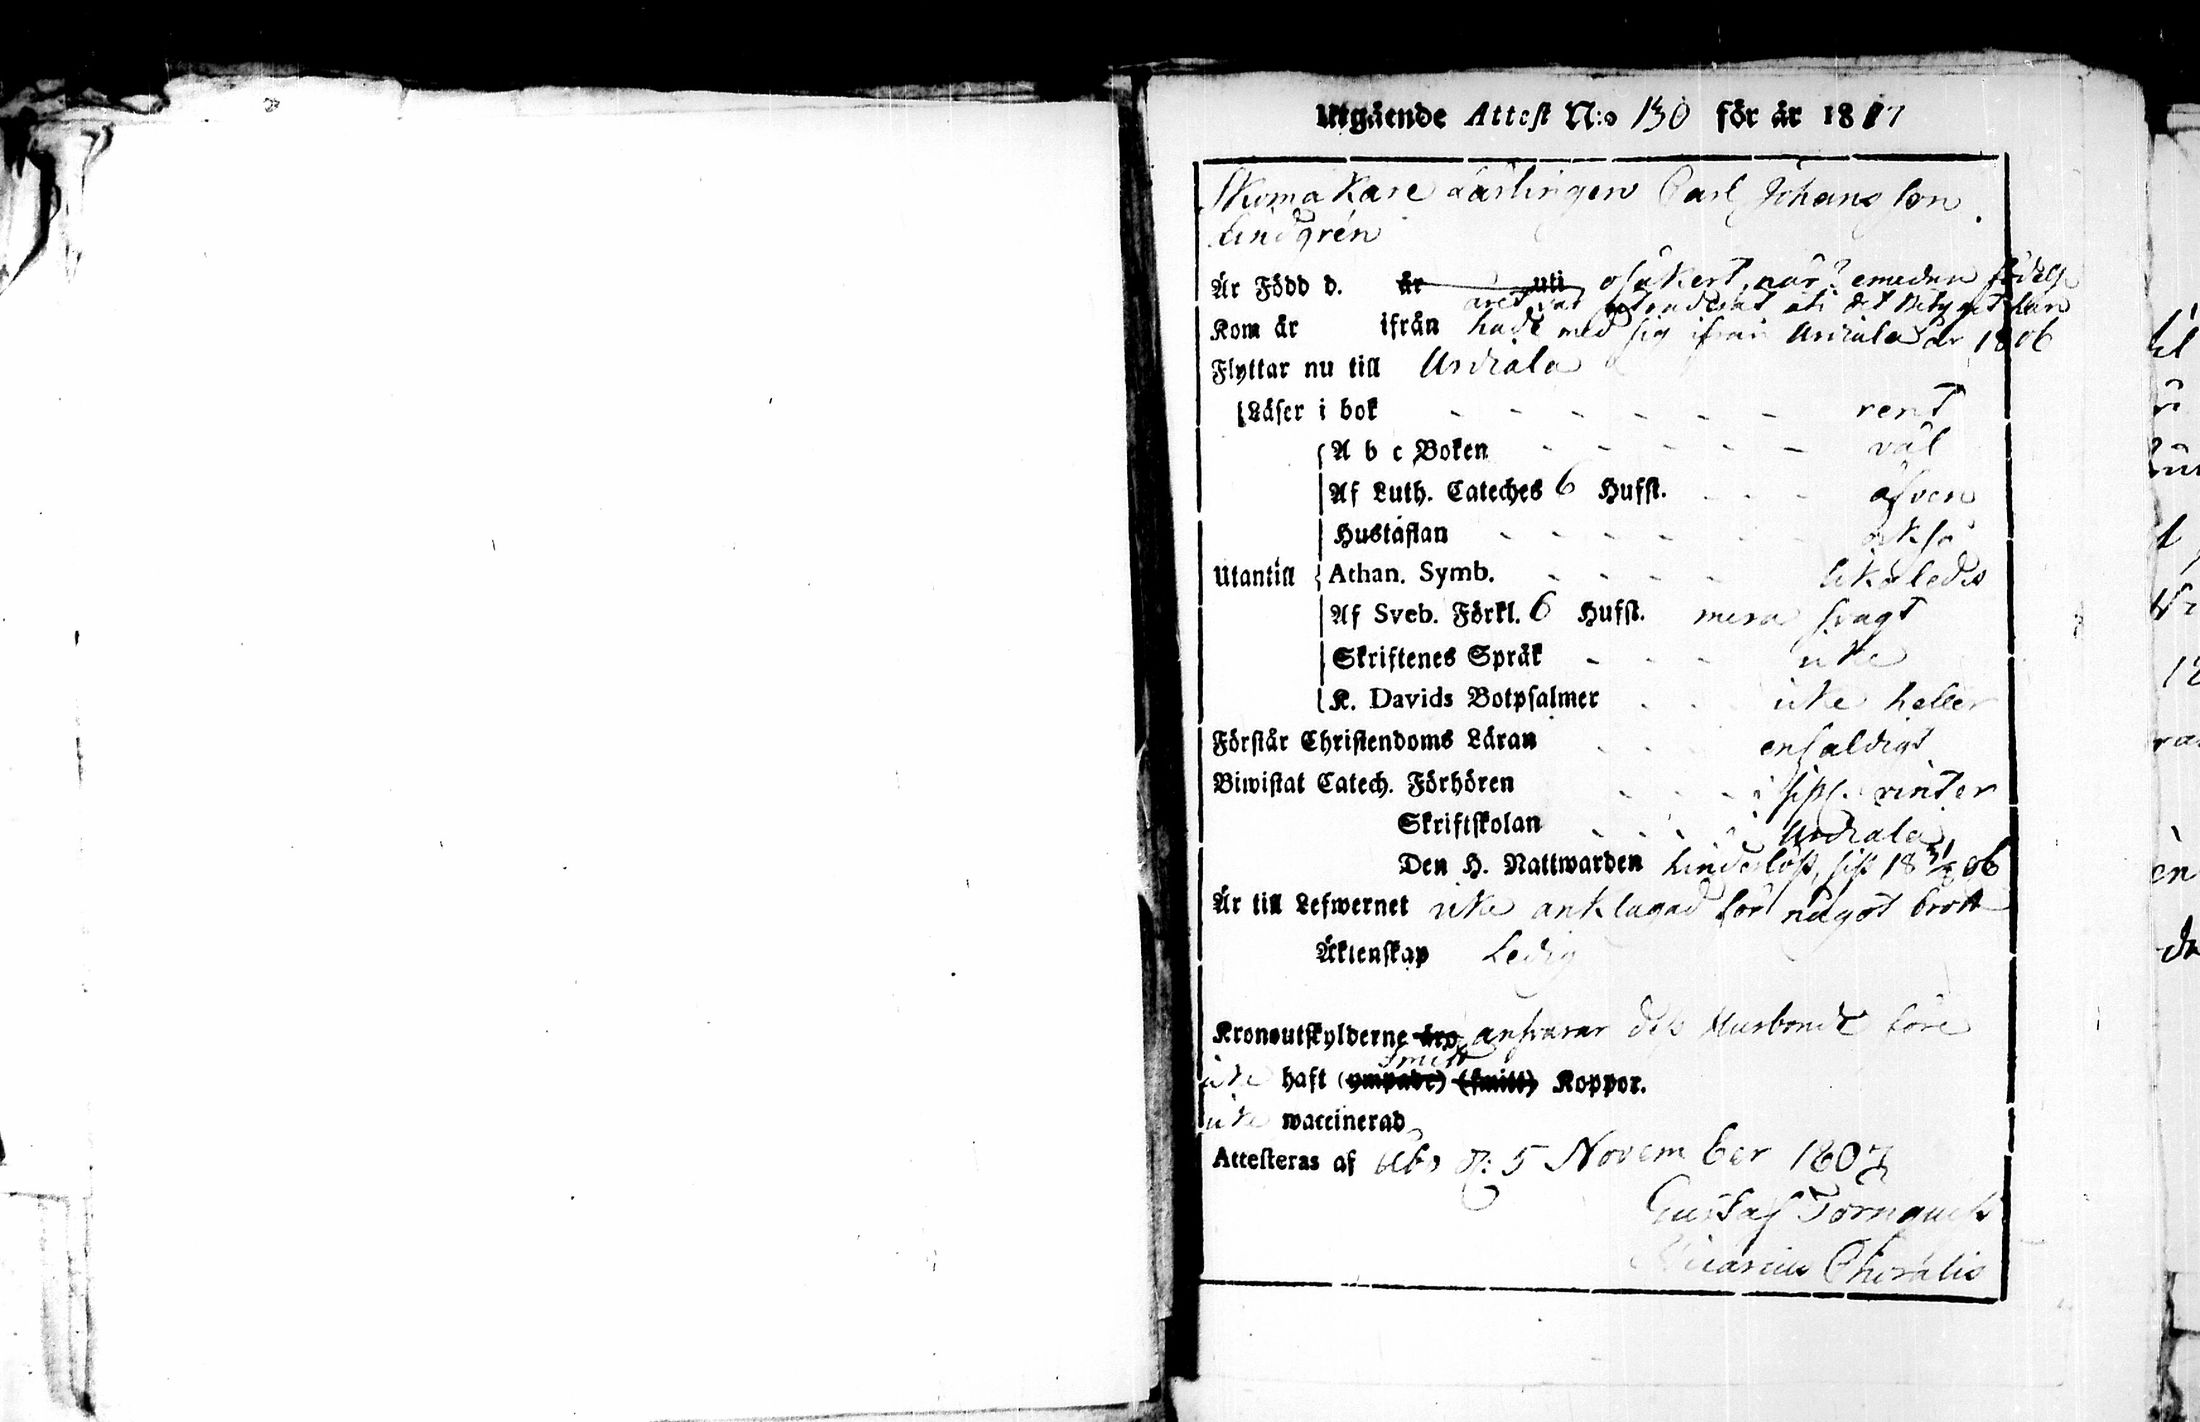 Utgående Attest N:o 130 för år 1807
Skomakare Lärlingen Carl Johansson
Lindgrén
Är Född d. är uti osäkert, när? emedan födelse
året var utraderat uti det Betyget han
Kom år ifrån hade med sig ifrån Urdiala år 1806
Flyttar nu till Urdiala
Läser i bok - - - - - - - rent
A b c Boken - - - - - väl
Af Luth. Cateches 6 Hufst. - - - äfven
Hustaflan - - - - - - också
Utantill Athan. Symb. - - - - likaledes
Af Sveb. Förkl. 6 Hufst. mera svagt
Skriftenes Språk - - - icke
K. Davids Botpsalmer - - icke heller
Förstår Christendoms Läran - - - enfaldigt
Biwistat Catech. Förhören - - - i sistl. vinter
Skriftskolan - - - i Urdiala
Den H. Nattwarden hinderlöst, sist 18 31/8 06
Är till Lefwernet icke anklagad för något brott
Äktenskap Ledig
Kronoutskylderne äro ansvarar dess Husbonde före
smitt
icke haft (ympade) (smitt) Koppor.
icke waccinerad
Attesteras af Åbo d: 5 November 1807
Gustaf Törnquist
Vicarius Choralis